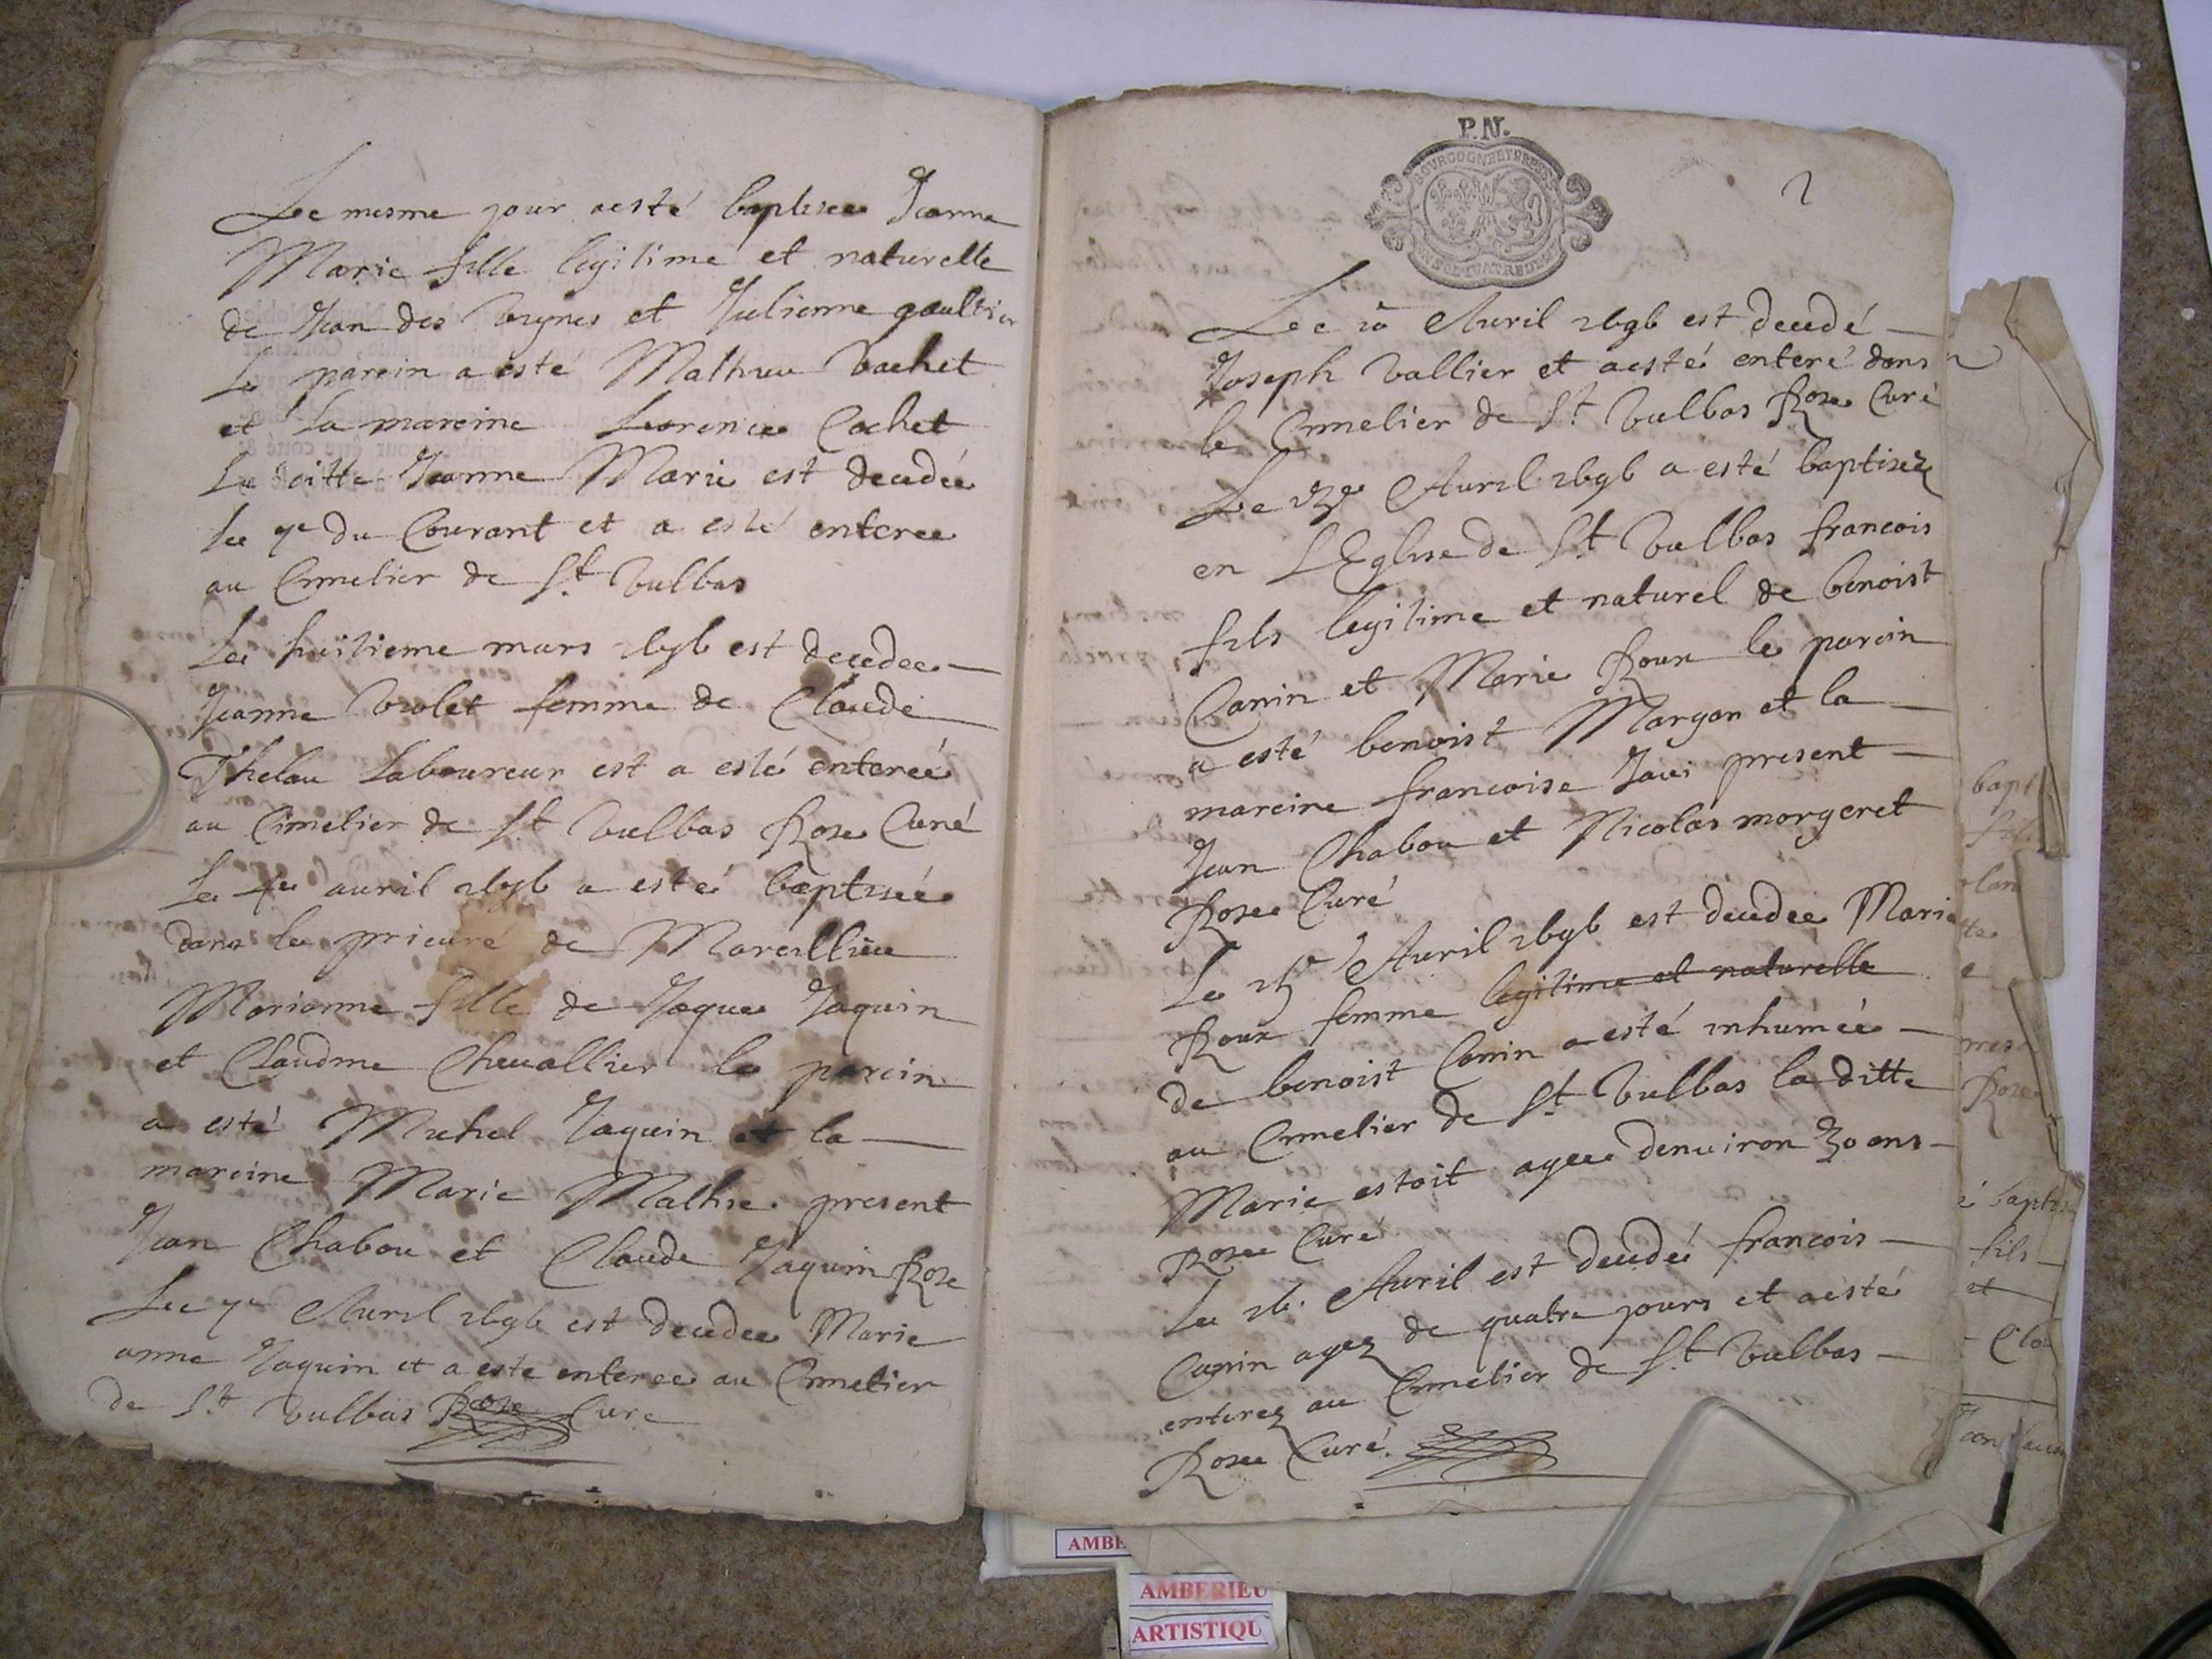 Le mesme jour a esté baptisee Jeanne
Marie fille legitime et naturelle
de Jean des vignes et Julienne gaultier
Le parein a esté Mathieu vachet
et la mareine Lorence Cochet
La ditte Jeanne Marie est decedée
Le 9e du Courant et a esté enteree
au Cimetier de St Vulbas
Le huitieme mars 1696 est decedee
Jeanne violet femme de Claude
Thelau Laboureur est a esté enterée
au Cimetier de St Vulbas Roze Curé
Le 4e auril 1696 a esté baptisée
dans le prieuré de Marcillieu
Marianne fille de Jaque Jaquin
et Claudine Cheuallier le parein
a esté Michel Jaquin et la
mareine Marie Mathie present
Jean Chabou et Claude Jaquin Roze
Le 9e Auril 1696 est decedee Marie
anne Jaquin et a este enteree au Cimetier
de St Vulbas Roze Cure
P.N.
BOURGOGNE ET BRESSE
2
Le 10 Auril 1696 est decedé
Joseph Vallier et a esté enteré dans
le Cimetier de St Vulbas Roze Curé
Le 13e Auril 1696 a esté baptisez
en L'Eglise de St Vulbas francois
fils legitime et naturel de benoist
Canin et Marie Roux le parein
a esté benoist Margan et la
mareine francoise present
Jean Chabou et Nicolas morgeret
Roze Curé
Le 15e Auril 1696 est decedee Marie
Roux femme legitime et naturelle
de benoist Canin a esté inhumée
au Cimetier de St Vulbas la ditte
Marie estoit agee denuiron 30 ans
Roze Curé
Le 16. Auril est decedé francois
Canin agez de quatre jours et a esté
enterez au Cimetier de St Vulbas
Roze Curé.
bapt
fils
et
Roze
AMBE
AMBERIEU
ARTISTIQU